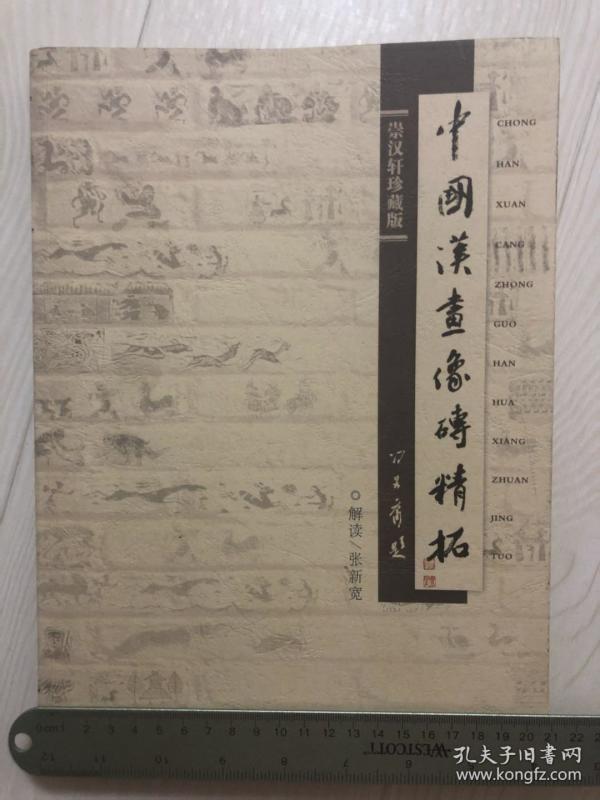 中國漢畫像磚精拓
崇汉轩珍藏版
解读/张新宽
CHONG
HAN
XUAN
CANG
ZHONG
GUO
HAN
HUA
XIANG
ZHUAN
JING
TUO
0cm1 2 3 4 5 6 7 8 9 10 11 12 13 14 15 16 17 18 19 20 21 22
WESTCOTT
孔夫子旧书网
www.kongfz.com